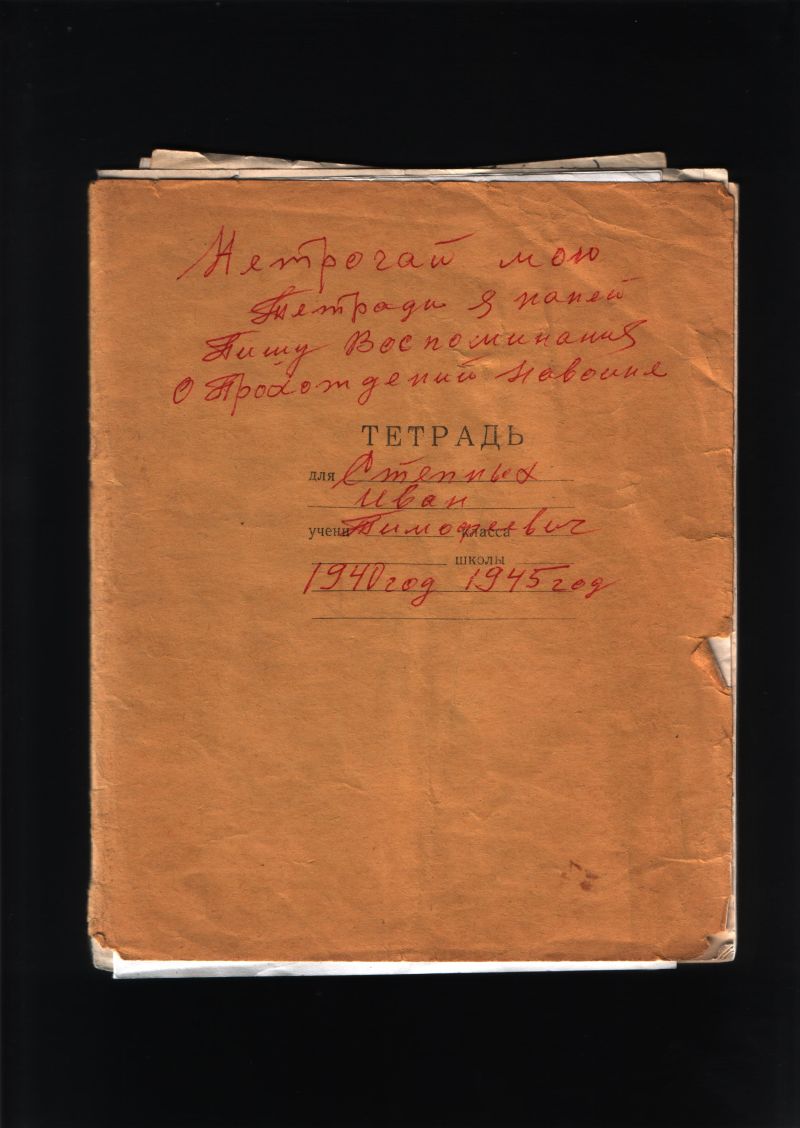 Нетрогай мою
Тетрадь я наней
Пишу Воспоминания
О Прохождений Навоине
ТЕТРАДЬ
для Степных
Иван
учени Тимофеевич класса
школы
1940 год 1945 год